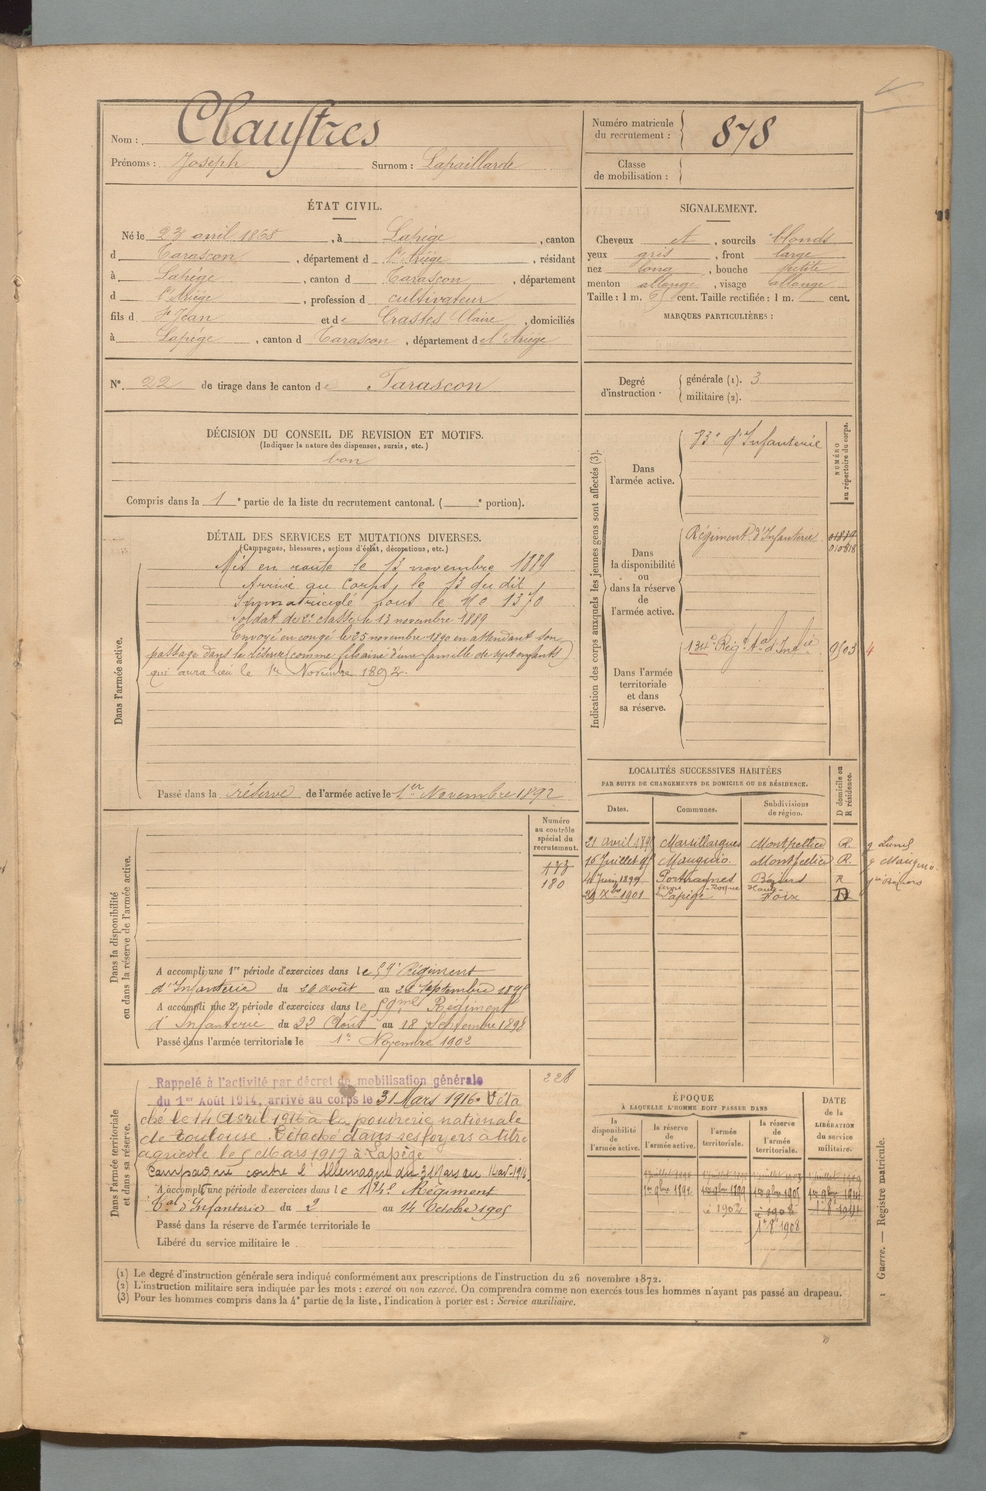 Nom : Claustres
Prénoms : Joseph Surnom : Lapaillarde
Numéro matricule du recrutement : 878
Classe de mobilisation :
ÉTAT CIVIL.
Né le 23 avril 1868, à Lapège, canton
d Tarascon, département d l'Ariège, résidant
à Lapège, canton d Tarascon, département
d l'Ariège, profession d cultivateur
fils d Jean et de Crastes Claire, domiciliés
à Lapège, canton d Tarascon, département de l'Ariège
N°. 22 de tirage dans le canton de Tarascon
SIGNALEMENT.
Cheveux et, sourcils blonds
yeux gris, front large
nez long, bouche petite
menton allongé, visage allongé
Taille : 1 m. cent. Taille rectifiée : 1 m. cent.
MARQUES PARTICULIÈRES :
Degré d'instruction. générale (1). 3
militaire (2).
DÉCISION DU CONSEIL DE REVISION ET MOTIFS.
(Indiquer la nature des dispenses, sursis, etc.)
bon
Compris dans la 1e partie de la liste du recrutement cantonal. ( e portion).
DÉTAIL DES SERVICES ET MUTATIONS DIVERSES.
(Campagnes, blessures, actions d'éclat, décorations, etc.)
Dans l'armée active.
Mis en route le 13 novembre 1889
Arrivé au corps, le 13 du dit
Immatriculé sous le No 1370
Soldat de 2e classe le 13 novembre 1889
Envoyé en congé le 25 novembre 1890 en attendant son
passage dans la réserve (comme fils ainé d'une famille de sept enfants)
qui aura lieu le 1er Novembre 1892.
Passé dans la réserve de l'armée active le 1er Novembre 1892
Indication des corps auxquels les jeunes gens sont affectés (3).
NUMÉRO au répertoire du corps.
Dans l'armée active.
83e d'Infanterie
Dans la disponibilité ou dans la réserve de l'armée active.
Régiment d'Infanterie
Dans l'armée territoriale et dans sa réserve.
134e Rég.t t.al d'Inf.ie
LOCALITÉS SUCCESSIVES HABITÉES
PAR SUITE DE CHANGEMENTS DE DOMICILE OU DE RÉSIDENCE.
Dates. Communes. Subdivisions de région. D domicile ou R résidence.
21 avril Marsillargues Montpellier R Lunel
16 Juillet Mauguio Montpellier R Mauguio
Juin 1899 Portiragnes Béziers R
29 Xbre 1901 Lapège Foix D
Dans la disponibilité ou dans la réserve de l'armée active.
Numéro au contrôle spécial du recrutement.
180
A accompli une 1re période d'exercices dans le 59e Régiment
d'Infanterie du 26 août au Septembre
A accompli une 2e période d'exercices dans le 59me Régiment
d'Infanterie du 22 Août au 18 Septembre 1898
Passé dans l'armée territoriale le 1er Novembre 1902
Dans l'armée territoriale et dans sa réserve.
Rappelé à l'activité par décret de mobilisation générale
du 1er Août 1914, arrivé au corps le 31 Mars 1916. Déta
ché le 14 Avril 1916 à la poudrerie nationale
de Toulouse. Détaché dans ses foyers à titre
agricole le 5 Mars 1917 à Lapège
Campagne contre l'Allemagne du 31 Mars au
A accompli une période d'exercices dans le 134e Régiment
t.al d'Infanterie du 2 au 14 Octobre 1905
Passé dans la réserve de l'armée territoriale le
Libéré du service militaire le
228
ÉPOQUE
À LAQUELLE L'HOMME DOIT PASSER DANS
la disponibilité de l'armée active. la réserve de l'armée active. l'armée territoriale. la réserve de l'armée territoriale.
DATE de la LIBÉRATION du service militaire.
à 1902
1er 8bre 1908
(1) Le degré d'instruction générale sera indiqué conformément aux prescriptions de l'instruction du 26 novembre 1872.
(2) L'instruction militaire sera indiquée par les mots : exercé ou non exercé. On comprendra comme non exercés tous les hommes n'ayant pas passé au drapeau.
(3) Pour les hommes compris dans la 4e partie de la liste, l'indication à porter est : Service auxiliaire.
Guerre. — Registre matricule.